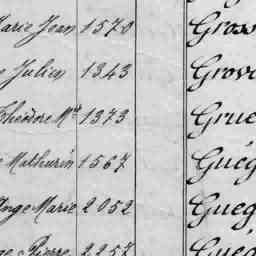 Marie Jean 1570 Gross
Julien 1343 Grov
Théodore Mie 1373 Grue
Mathurin 1567 Guég
Ange Marie 2052 Gueg
Pierre 2257 Guég